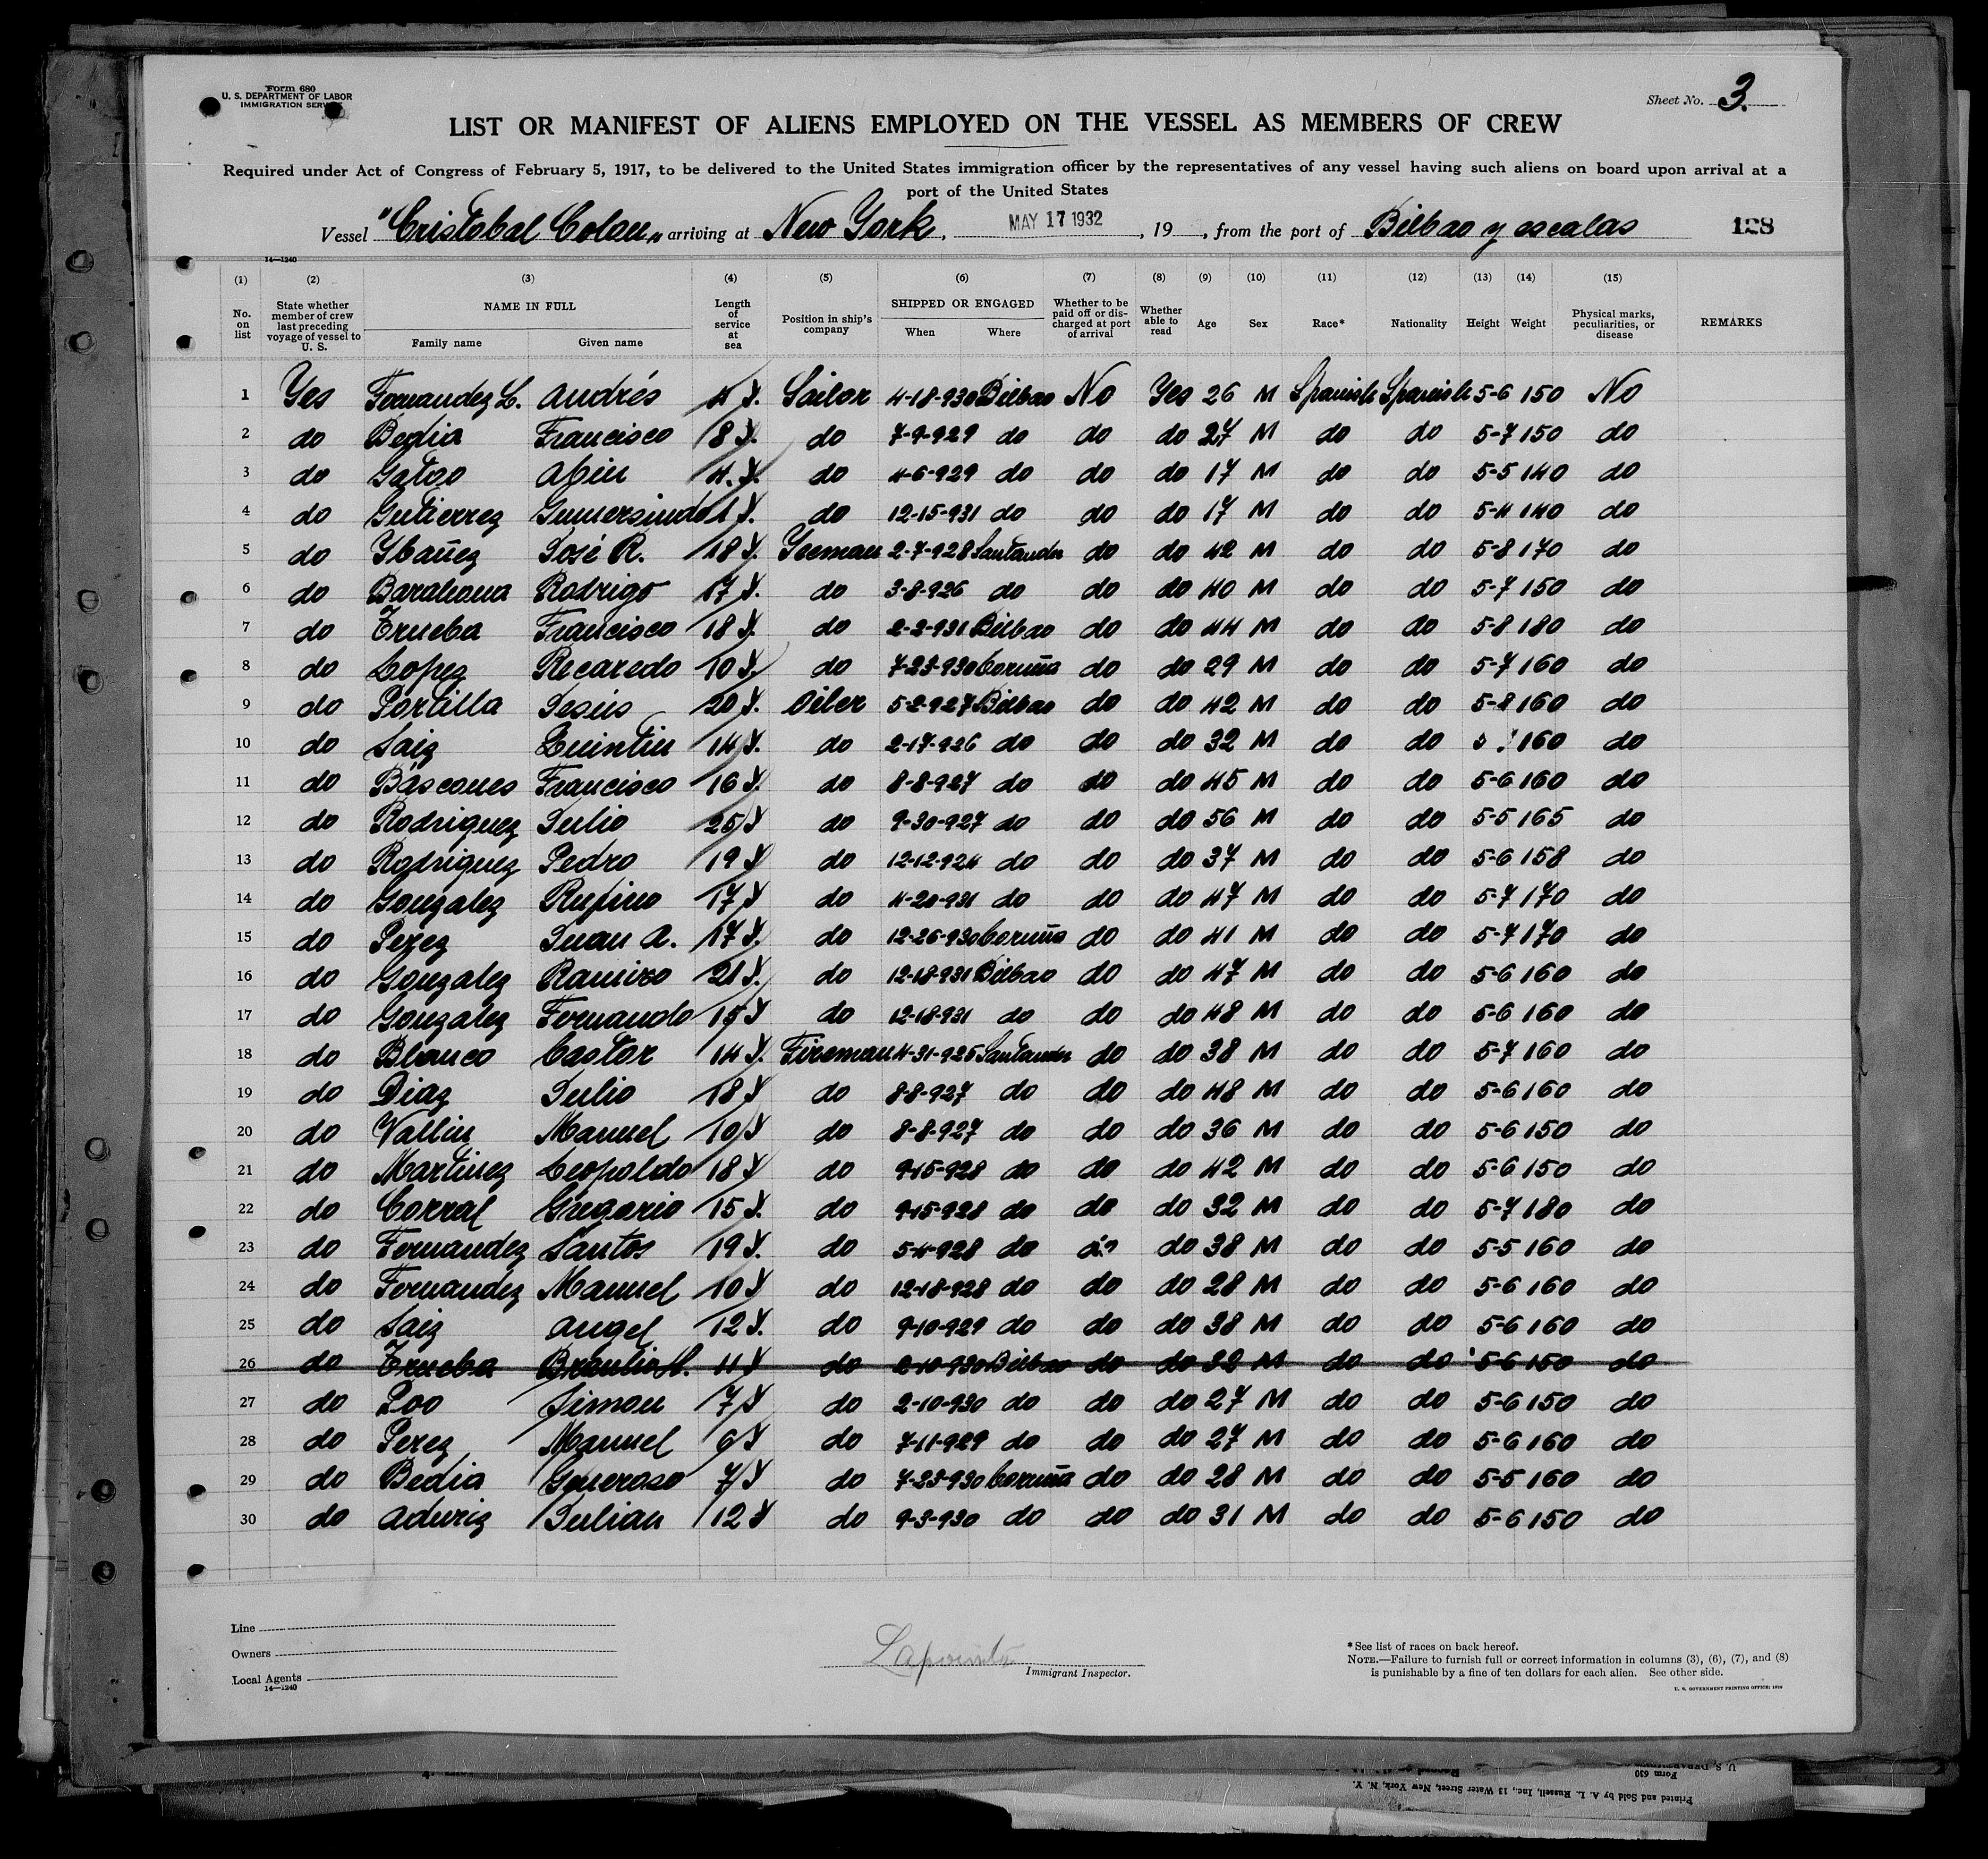 Form 680
U. S. DEPARTMENT OF LABOR
IMMIGRATION SERVICE
Sheet No. 3.
LIST OR MANIFEST OF ALIENS EMPLOYED ON THE VESSEL AS MEMBERS OF CREW
Required under Act of Congress of February 5, 1917, to be delivered to the United States immigration officer by the representatives of any vessel having such aliens on board upon arrival at a
port of the United States
Vessel "Cristobal Colon" arriving at New York, MAY 17 1932, 19 , from the port of Bilbao y escalas 128
14—1240
(1) (2) (3) (4) (5) (6) (7) (8) (9) (10) (11) (12) (13) (14) (15)
No. on list State whether member of crew last preceding voyage of vessel to U. S. NAME IN FULL Family name Given name Length of service at sea Position in ship's company SHIPPED OR ENGAGED When Where Whether to be paid off or discharged at port of arrival Whether able to read Age Sex Race* Nationality Height Weight Physical marks, peculiarities, or disease REMARKS
1 Yes Fernandez L. Andrés 4 Y. Sailor 4-18-930 Bilbao No Yes 26 M Spanish Spanish 5-6 150 No
2 do Bedia Francisco 8 Y. do 7-9-929 do do do 27 M do do 5-7 150 do
3 do Gatoo 4 Y. do 4-6-929 do do do 17 M do do 5-5 140 do
4 do Gutierrez Gumersindo 1 Y. do 12-15-931 do do do 17 M do do 5-4 140 do
5 do Ybañez José R. 18 Y. Yeeman 2-7-928 Santander do do 42 M do do 5-8 170 do
6 do Barahona Rodrigo 17 Y. do 3-8-926 do do do 40 M do do 5-7 150 do
7 do Trueba Francisco 18 Y. do 2-2-931 Bilbao do do 44 M do do 5-8 180 do
8 do Lopez Recaredo 10 Y. do 7-23-930 Coruña do do 29 M do do 5-7 160 do
9 do Portilla Jesús 20 Y. Oiler 5-2-927 Bilbao do do 42 M do do 5-8 160 do
10 do Saiz Quintin 14 Y. do 2-17-926 do do do 32 M do do 160 do
11 do Báscones Francisco 16 Y. do 8-8-927 do do do 45 M do do 5-6 160 do
12 do Rodriguez Julio 25 Y do 9-30-927 do do do 56 M do do 5-5 165 do
13 do Rodriguez Pedro 19 Y do 12-12-924 do do do 37 M do do 5-6 158 do
14 do Gonzalez Rufino 17 Y do 4-20-931 do do do 47 M do do 5-7 170 do
15 do Perez Juan A. 17 Y. do 12-26-930 Coruña do do 41 M do do 5-7 170 do
16 do Gonzalez Ramiro 21 Y. do 12-18-931 Bilbao do do 47 M do do 5-6 160 do
17 do Gonzalez Fernando 15 Y do 12-18-931 do do do 48 M do do 5-6 160 do
18 do Blanco Castor 14 Y. Fireman 4-31-925 Santander do do 38 M do do 5-7 160 do
19 do Diaz Julio 18 Y do 8-8-927 do do do 48 M do do 5-6 160 do
20 do Vallin Manuel 10 Y do 8-8-927 do do do 36 M do do 5-6 150 do
21 do Martinez Leopoldo 18 Y do 9-15-928 do do do 42 M do do 5-6 150 do
22 do Corral Gregorio 15 Y. do 9-15-928 do do do 32 M do do 5-7 180 do
23 do Fernandez Santos 19 Y. do 5-4-928 do do do 38 M do do 5-5 160 do
24 do Fernandez Manuel 10 Y do 12-18-928 do do do 28 M do do 5-6 160 do
25 do Saiz Angel 12 Y. do 9-10-929 do do do 38 M do do 5-6 160 do
26 do Trueba Braulio H. 11 Y do 2-10-930 Bilbao do do 32 M do do 5-6 150 do
27 do Poo Simon 7 Y do 2-10-930 do do do 27 M do do 5-6 150 do
28 do Perez Manuel 6 Y do 7-11-929 do do do 27 M do do 5-6 160 do
29 do Bedia Generoso 7 Y do 7-23-930 Coruña do do 28 M do do 5-5 160 do
30 do Aduriz Julian 12 Y do 9-3-930 do do do 31 M do do 5-6 150 do
Line
Owners
Local Agents
14—1240
Lapointe
Immigrant Inspector.
*See list of races on back hereof.
NOTE.—Failure to furnish full or correct information in columns (3), (6), (7), and (8)
is punishable by a fine of ten dollars for each alien. See other side.
U. S. GOVERNMENT PRINTING OFFICE: 1929
Form 630
Printed and Sold by A. L. Russell, Inc., 13 Water Street, New York, N. Y.